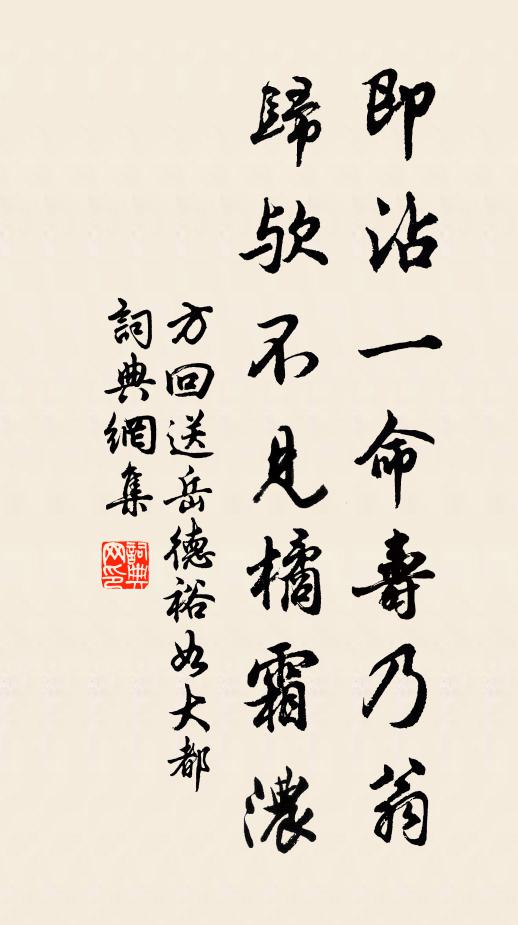 即沾一命壽乃翁
歸欤不見橘霜濃
方回送岳德裕如大都
詞典網集
詞典網印